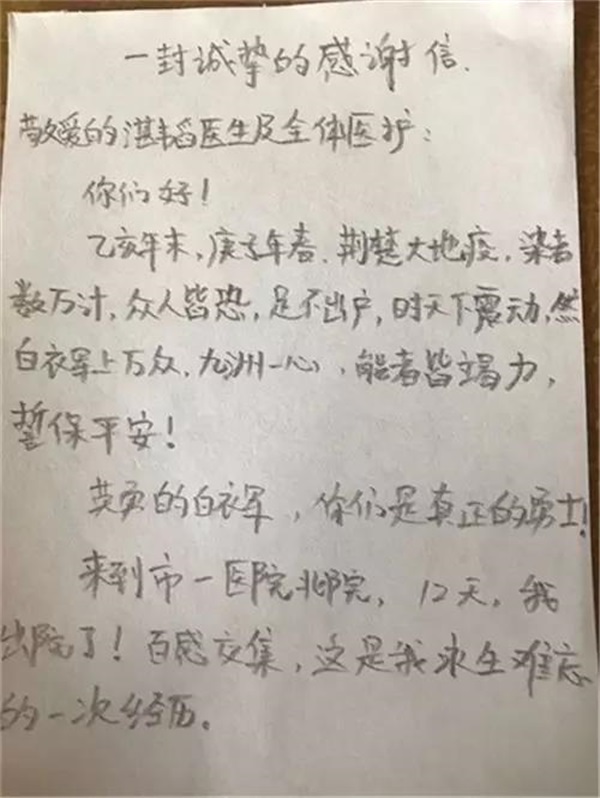 一封诚挚的感谢信.
敬爱的湛韬医生及全体医护：
你们好！
乙亥年末，庚子年春.荆楚大地疫，染者
数万计，众人皆恐，足不出户，时天下震动，然
白衣军上万众，九洲一心，能者皆竭力，
誓保平安！
英勇的白衣军，你们是真正的勇士！
来到市一医院北院，12天，我
出院了！百感交集，这是我永生难忘
的一次经历。